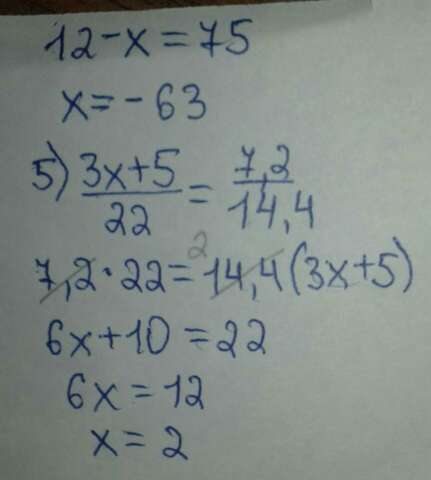 12-x=75
x=-63
5) 3x+5/22 = 7,2/14,4
7,2·22= 2 14,4(3x+5)
6x+10=22
6x=12
x=2